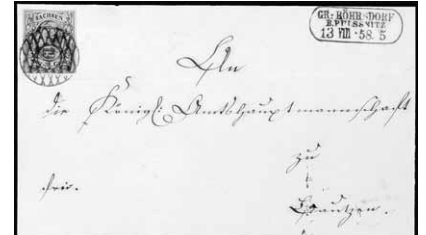 SACHSEN
GR: RÖHRSDORF
B. PULSSNITZ
13 VIII 58. 5
An
die Königl: Amtshauptmannschaft
zu
frei.
Bautzen.